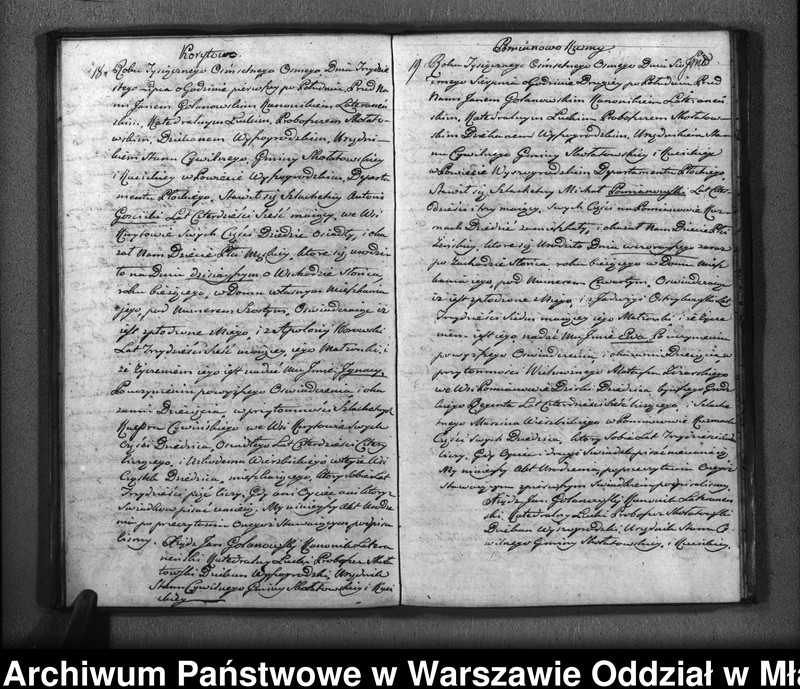 Korytowo.
18. Roku Tysiącznego Osmsetnego Osmego Dnia Trzydzie
stego Lipca o Godzinie pierwszy po Południu Przed Na
mi Janem Golanowskim Kanonikiem Lateraneń
skim, Katedralnym Łuckim, Proboszczem Skołatow
skim, Dziekanem Wyszogrodzkim, Urzędni-
kiem Stanu Cywilnego, Gminy Skołatowskiey
i w Powiecie Wyszogrodzkim, Departa
mentu Płockiego, Stawił się Szlachetny Antoni
Gościcki Lat Czterdzieści Sześć maiący, we Wsi
Korytowie Swych Części Dziedzic Osiadły, i oka
zał Nam Dziecię Płci Męskiey, które się urodzi
ło na Dniu dzisieyszym o Wschodzie Słońca,
roku bieżącego, w Domu własnym Mieszkania
jego, pod Numerem Szostym, Oświadczaiąc iż
jest spłodzone z Niego, i z Apolonij
Lat Trzydzieści Sześć maiącey, iego Małżonki, i
że życzeniem iego jest nadać Mu Jmie, Jgnacy.
Po uczynieniu powyższego Oświadczenia, i oka
zaniu Dziecięcia, w przytomności Szlachetnych
Kacpra we Wsi Korytowie Swych
Części Dziedzica, Osiadłego Lat Czterdzieści Cztery
liczącego, i Wierzbickiego w teyże Wsi
Cząstki Dziedzica, mieszkaiącego, który Sobie Lat
Trzydzieści pięć liczy, Gdy ani Oyciec ani którzy
Świadkowie pisać umieią. My ninieyszy Akt Urodze
nia po przeczytaniu Onegoż Stawaiącym podpisa
liśmy. Xiądz Jan Golanowski Kanonik Latera
neński Katedralny Łucki Proboszcz Skoła
towski Dziekan Wyszogrodzki, Urzędnik
Stanu Cywilnego Gminy Skołatowskiey i
Pomianowo Kuzmy.
19. Roku Tysiącznego Osmsetnego Osmego Dnia
Sierpnia o Godzinie Drugiey po Południu Przed
Nami Janem Golanowskim Kanonikiem Lateraneń
skim, Katedralnym Łuckim Proboszczem Skołatow
skim Dziekanem Wyszogrodzkim, Urzędnikiem Sta
nu Cywilnego Gminy Skołatowskiey i
w Powiecie Wyszogrodzkim Departamentu Płockiego,
Stawił się Szlachetny Michał Pomianowski Lat Czter
dzieści i trzy maiący, Swych Części na Pomianowie Kuz
mach Dziedzic zamieszkały, i okazał Nam Dziecię Płci
Żeńskiey, które się Urodziło Dnia wczorayszego zaraz
po Zachodzie Słońca roku bieżącego w Domu
pod Numerem Czwartym, Oświadczaiąc
iż jest spłodzone z Niego, i z Jadwigi Lat
Trzydzieści Siedm maiącey iego Małżonki i że życze
niem jest iego nadać Mu Jmie Ewa. Po uczynieniu
powyższego Oświadczenia, i okazaniu Dziecięcia w
przytomności Macieja
we Wsi Pomianowie Dzierki Dziedzica
Lat liczącego, i Szlache
tnego Marcina Wierzbickiego w Pomianowie Kuzmach
Części Swych Dziedzica, który Sobie Lat Trzydzieści
liczy, Gdy Oyciec i drugi Świadek pisać nie umieią.
My ninieyszy Akt Urodzenia, po przeczytaniu Onegoż
Stawaiącym z pierwszym Świadkiem podpisaliśmy.
Xiądz Jan Golanowski Kanonik Lateraneń
ski Katedralny Łucki Proboszcz Skołatowski
Dziekan Wyszogrodzki, Urzędnik Stanu Cy
wilnego Gminy Skołatowskiey, i
Archiwum Państwowe w Warszawie Oddział w Mła